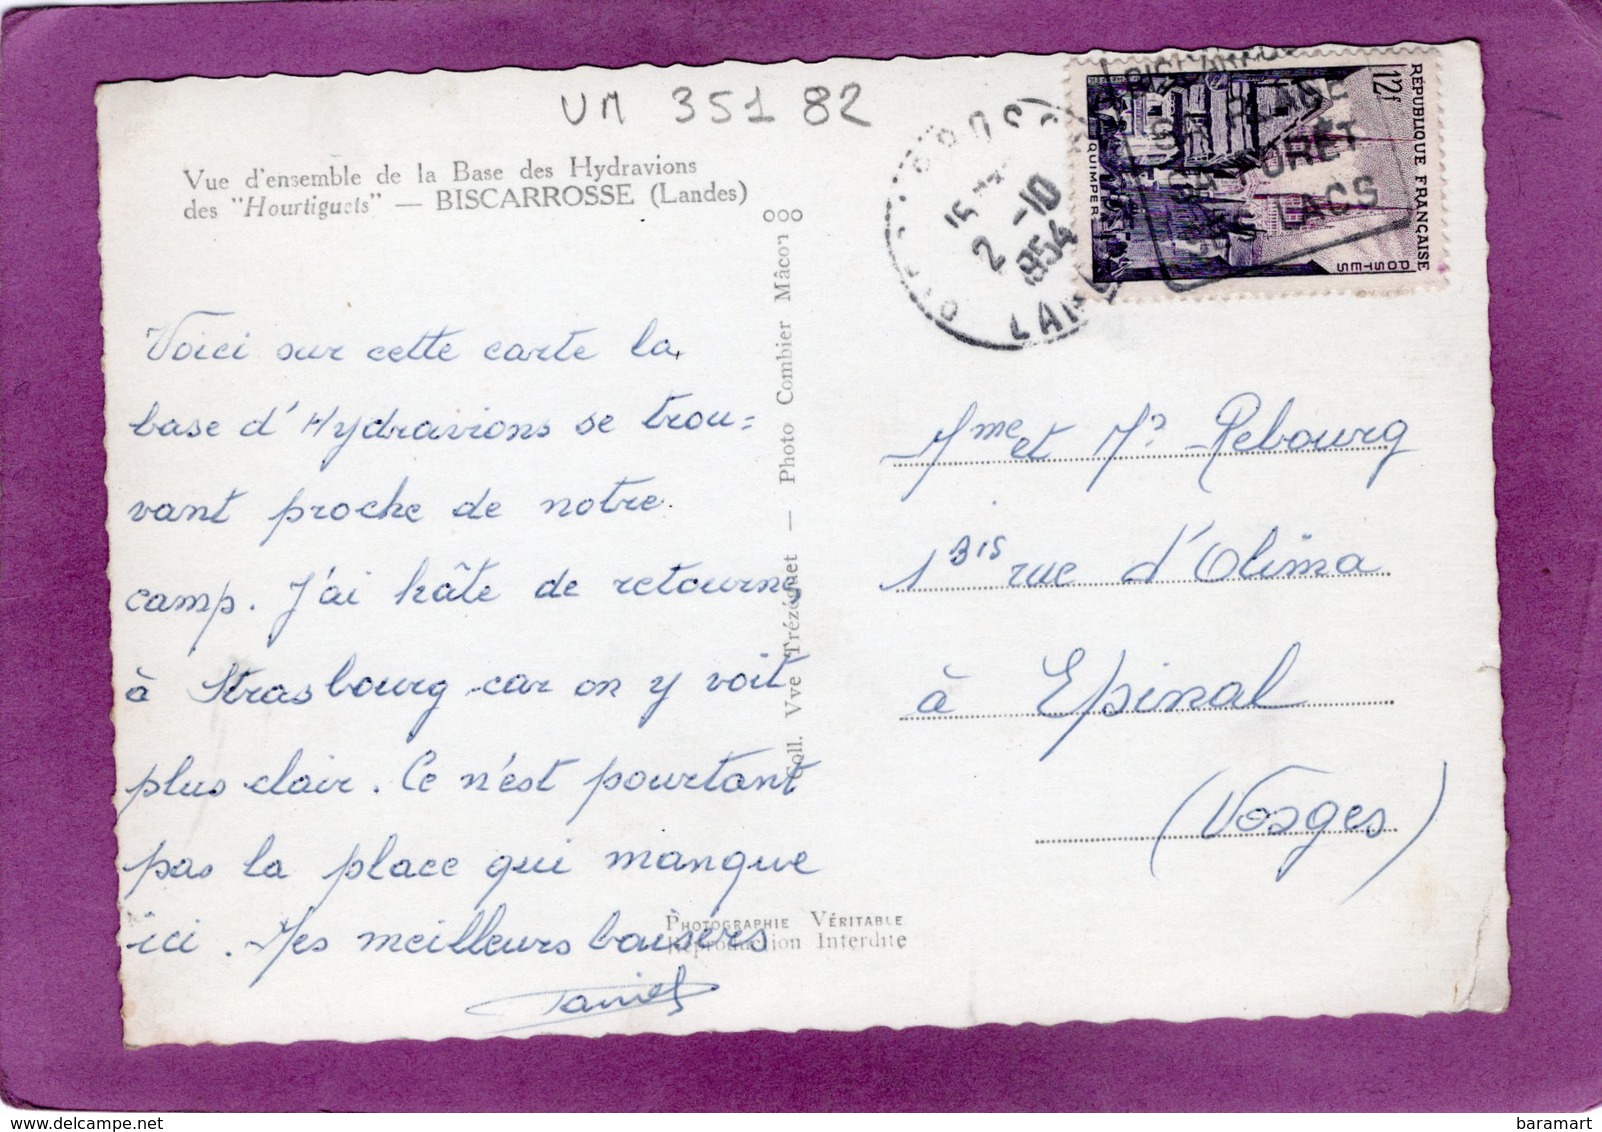 UM 351 82
Vue d'ensemble de la Base des Hydravions
des "Hourtiguets" — BISCARROSSE (Landes)
Voici sur cette carte la
base d'Hydravions se trou=
vant proche de notre
camp. J'ai hâte de retourner
à Strasbourg car on y voit
plus clair. Ce n'est pourtant
pas la place qui manque
ici. Mes meilleurs baisers
Daniel
Coll. Vve Trézéguet — Photo Combier Mâcon
PHOTOGRAPHIE VÉRITABLE
Reproduction Interdite
2 -10
1954
PLAGE
FORÊT
LACS
RÉPUBLIQUE FRANÇAISE
POSTES
12F
QUIMPER
Mme et Mr Rebourg
1 Bis rue d'Olima
à Epinal
(Vosges)
baramart